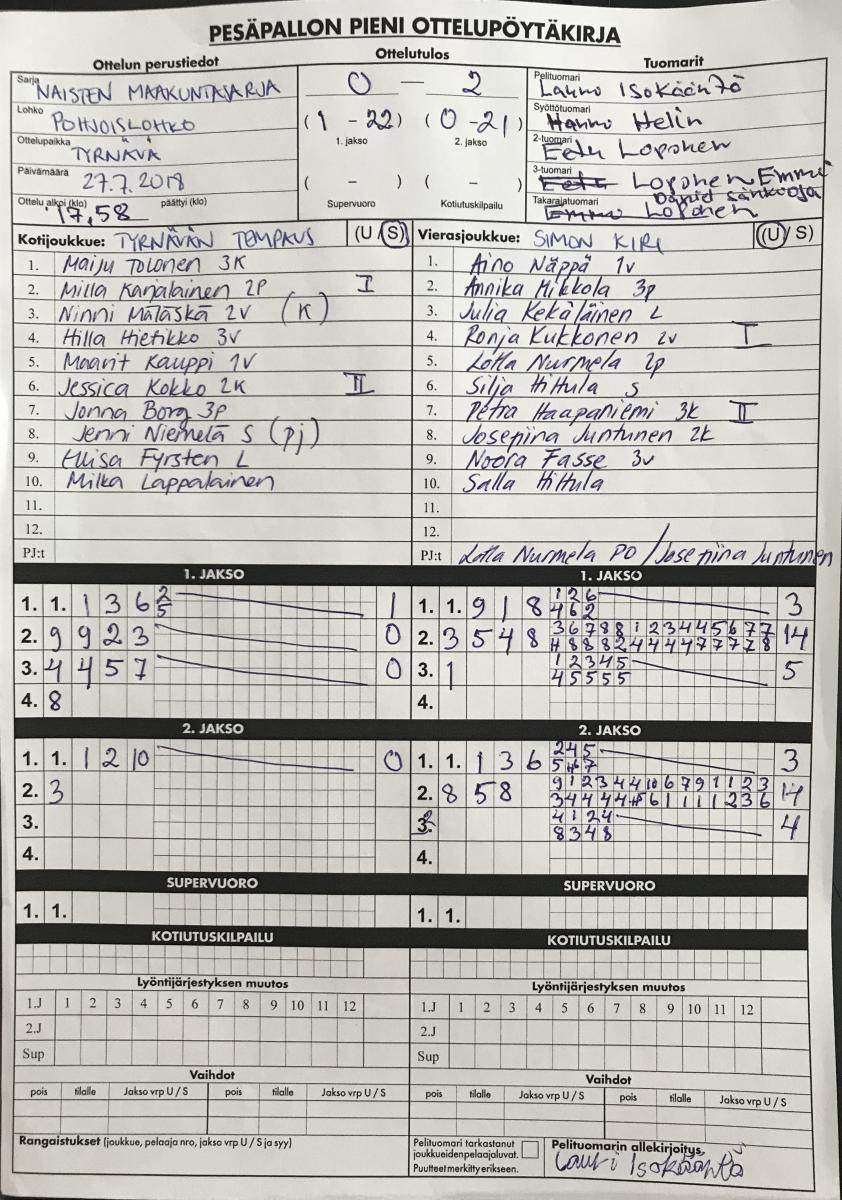 PESÄPALLON PIENI OTTELUPÖYTÄKIRJA
Ottelun perustiedot
Ottelutulos
Tuomarit
Sarja NAISTEN MAAKUNTASARJA
Lohko POHJOISLOHKO
Ottelupaikka TYRNÄVÄ
Päivämäärä 27.7.2018
Ottelu alkoi (klo) 17,58 päättyi (klo)
0 — 2
(1 - 22) (0 - 21)
1. jakso 2. jakso
( - ) ( - )
Supervuoro Kotiutuskilpailu
Pelituomari Lauri Isokääntö
Syöttötuomari Hannu Helin
2-tuomari Eetu Loponen
3-tuomari Eetu Loponen Emmi
Takarajatuomari Emmi Loponen
Kotijoukkue: TYRNÄVÄN TEMPAUS (U/S)
1. Maiju Tolonen 3K
2. Milla Karjalainen 2P I
3. Ninni Mataskä 2V (K)
4. Hilla Hietikko 3V
5. Maarit Kauppi 1V
6. Jessica Kokko 2K II
7. Jonna Borg 3p
8. Jenni Niemelä S (pj)
9. Ellisa Fyrsten L
10. Milka Lappalainen
11.
12.
PJ:t
Vierasjoukkue: SIMON KIRI (U/S)
1. Aino Näppä 1v
2. Annika Mikkola 3p
3. Julia Kekäläinen L
4. Ronja Kukkonen 2v I
5. Lotta Nurmela 2p
6. Silja Hiltula S
7. Petra Haapaniemi 3K II
8. Josefiina Juntunen 2k
9. Noora Fasse 3v
10. Salla Hiltula
11.
12.
PJ:t Lotta Nurmela PO / Josefiina Juntunen
1. JAKSO
1. 1. 1 3 6 2 1
5
2. 9 9 2 3 0
3. 4 4 5 7 0
4. 8
2. JAKSO
1. 1. 1 2 10 0
2. 3
3.
4.
SUPERVUORO
1. 1.
KOTIUTUSKILPAILU
Lyöntijärjestyksen muutos
1.J 1 2 3 4 5 6 7 8 9 10 11 12
2.J
Sup
Vaihdot
pois tilalle Jakso vrp U / S pois tilalle Jakso vrp U / S
Rangaistukset (joukkue, pelaaja nro, jakso vrp U / S ja syy)
1. JAKSO
1. 1. 9 1 8 1 2 6 3
4 6 2
2. 3 5 4 8 3 6 7 8 8 1 2 3 4 4 5 6 7 7 14
4 8 8 8 2 4 4 4 4 7 7 7 7 8
3. 1 1 2 3 4 5 5
4 5 5 5 5
4.
2. JAKSO
1. 1. 1 3 6 2 4 5 3
2. 8 5 8 9 1 2 3 4 4 10 6 7 9 1 1 2 3 14
4 1 2 4 4
8 3 4 8
4.
SUPERVUORO
1. 1.
KOTIUTUSKILPAILU
Lyöntijärjestyksen muutos
1.J 1 2 3 4 5 6 7 8 9 10 11 12
2.J
Sup
Vaihdot
pois tilalle Jakso vrp U / S pois tilalle Jakso vrp U / S
Pelituomari tarkastanut
joukkueidenpelaajaluvat.
Puutteet merkitty erikseen.
Pelituomarin allekirjoitys,
Lauri Isokääntö